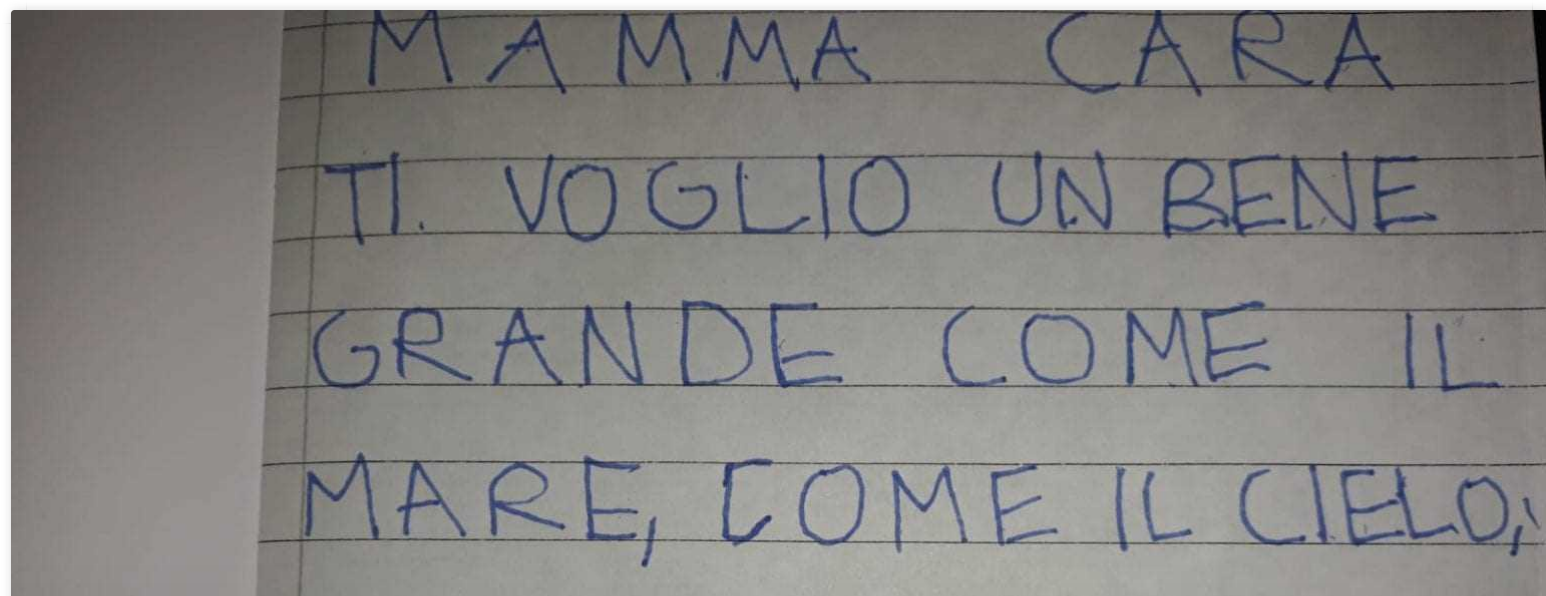 MAMMA CARA
TI. VOGLIO UN BENE
GRANDE COME IL
MARE, COME IL CIELO,